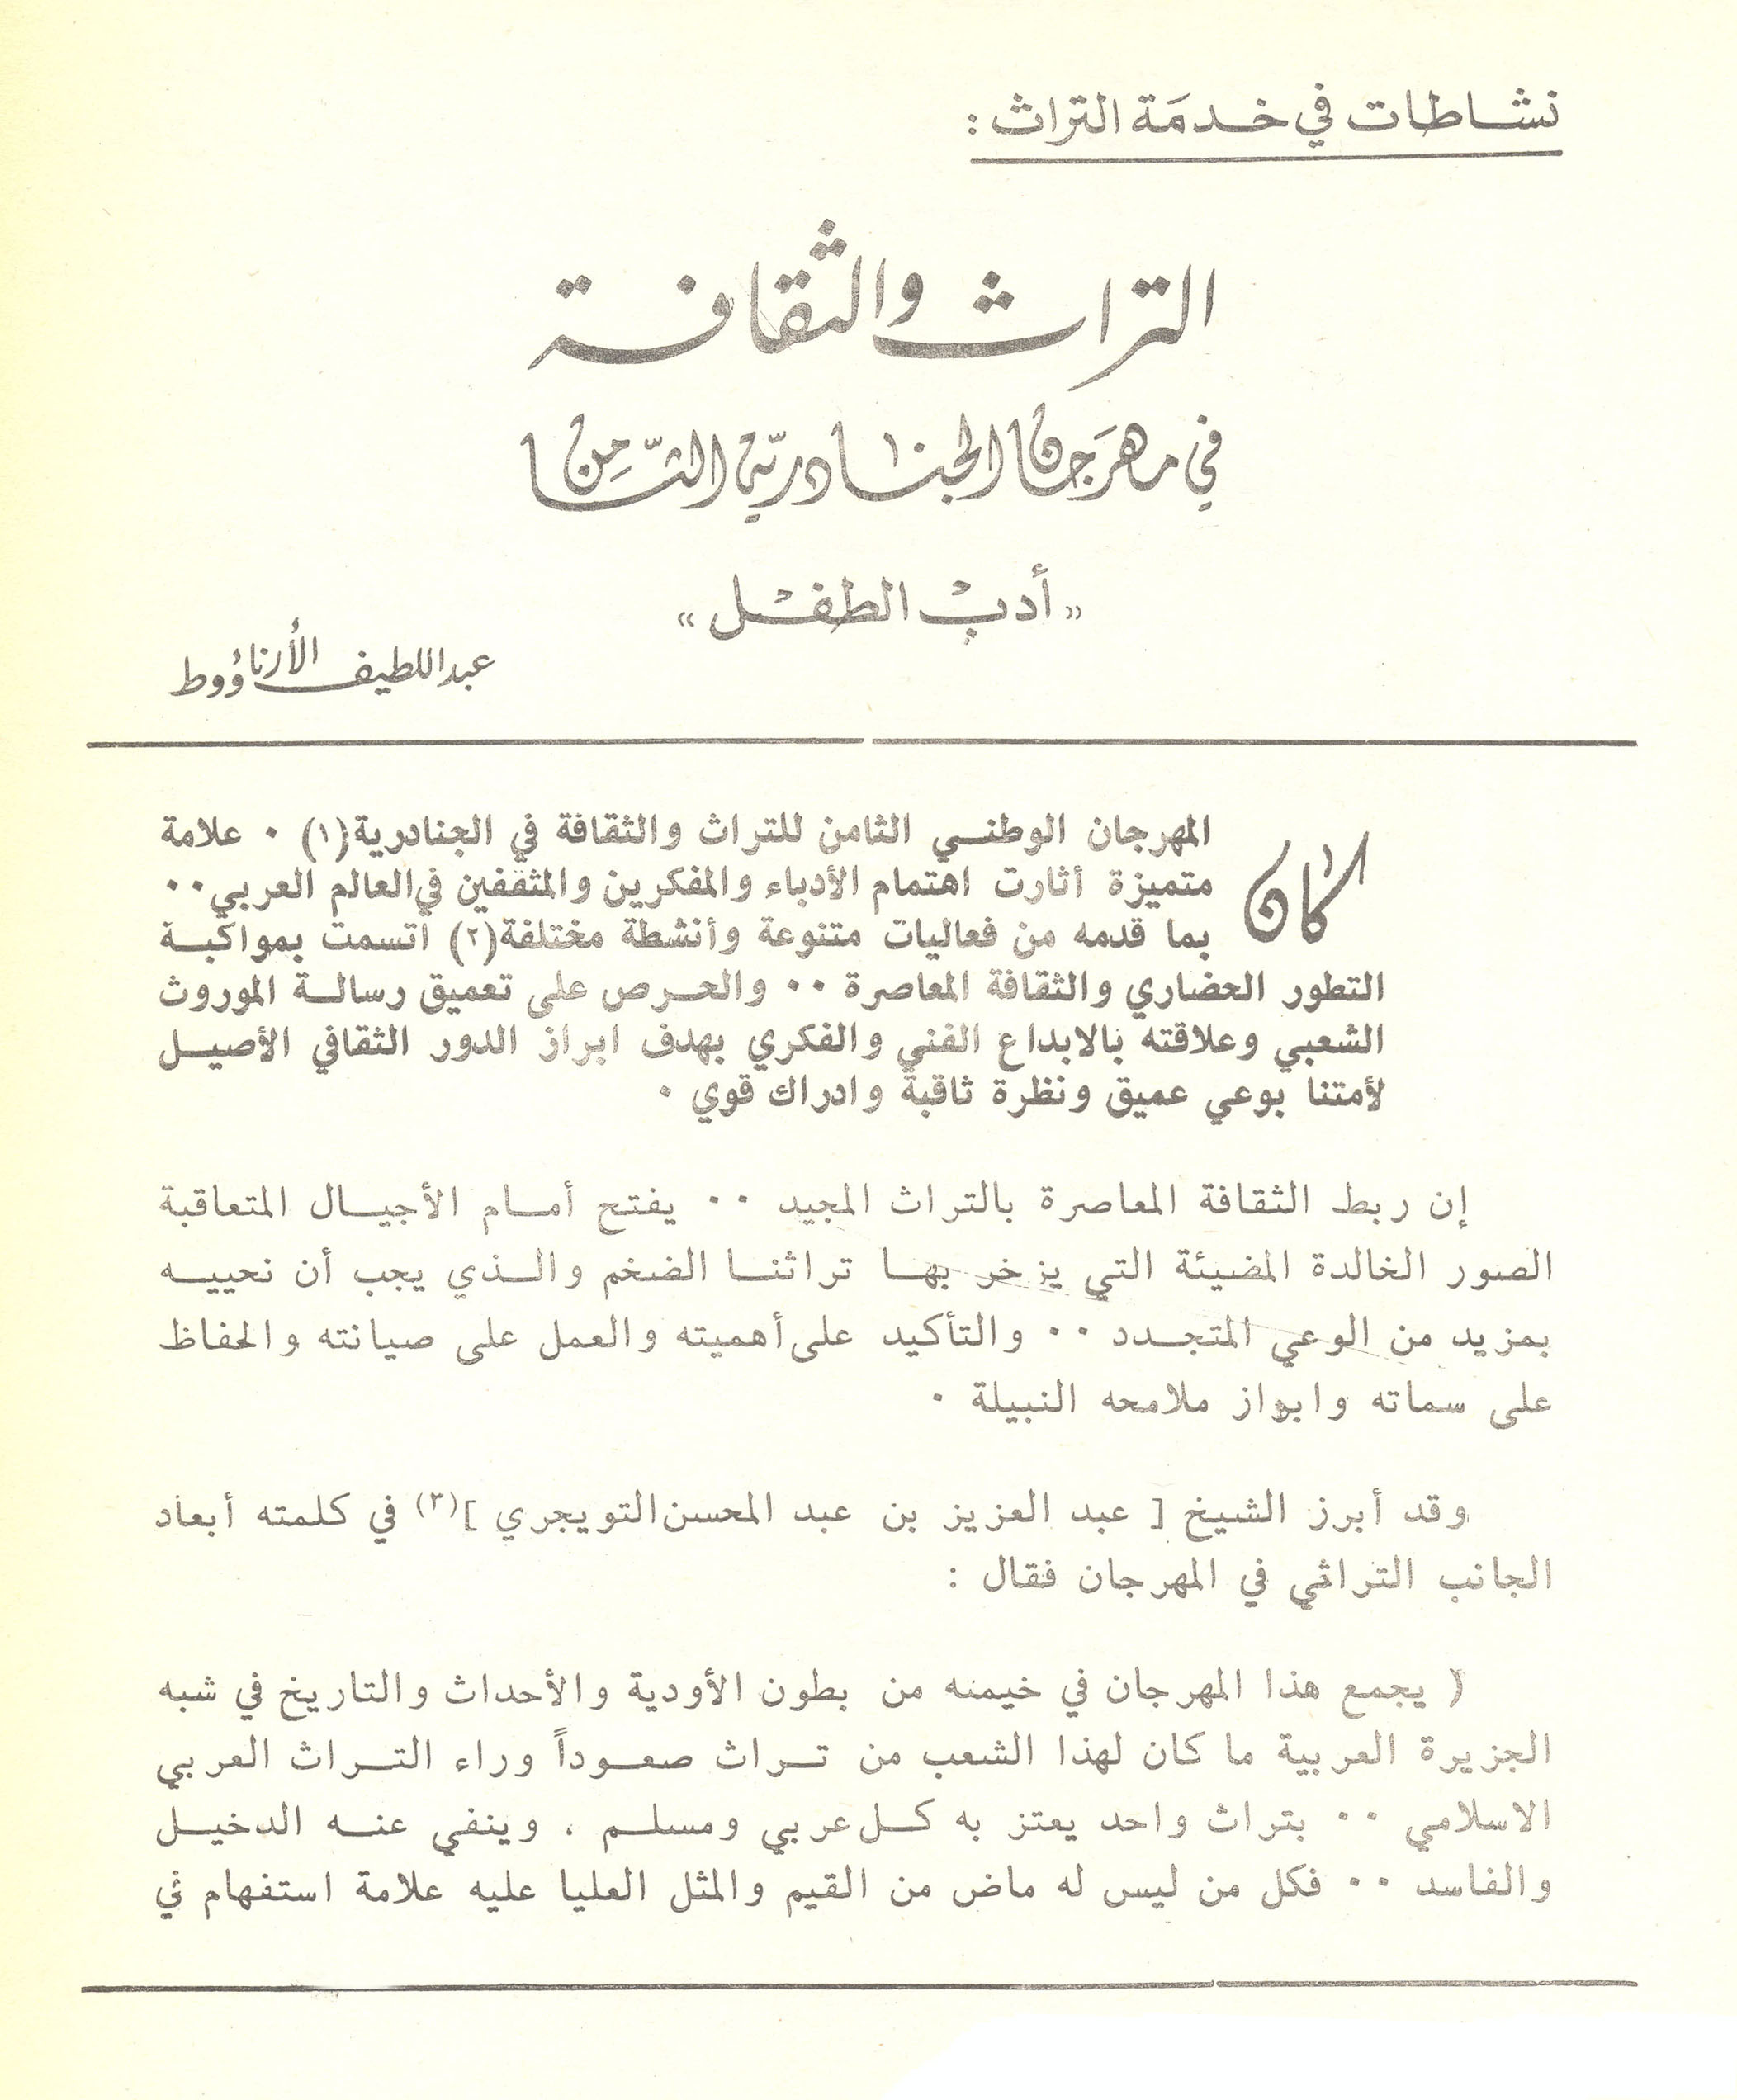 نشاطات في خدمَة التراث :
التراث والثقافة
في مهرَجان الجنادريّة الثّامِن
« أدبْ الطفْل »
عبداللطيف الأرناؤوط
كان المهرجان الوطني الثامن للتراث والثقافة في الجنادرية(١) ٠ علامة
متميزة أثارت اهتمام الأدباء والمفكرين والمثقفين في العالم العربي ٠٠
بما قدمه من فعاليات متنوعة وأنشطة مختلفة(٢) اتسمت بمواكبة
التطور الحضاري والثقافة المعاصرة ٠٠ والحرص على تعميق رسالة الموروث
الشعبي وعلاقته بالابداع الفني والفكري بهدف ابراز الدور الثقافي الأصيل
لأمتنا بوعي عميق ونظرة ثاقبة وادراك قوي ٠
إن ربط الثقافة المعاصرة بالتراث المجيد ٠٠ يفتح أمام الأجيال المتعاقبة
الصور الخالدة المضيئة التي يزخر بها تراثنا الضخم والذي يجب أن نحييه
بمزيد من الوعي المتجدد ٠٠ والتأكيد على أهميته والعمل على صيانته والحفاظ
على سماته وابراز ملامحه النبيلة ٠
وقد أبرز الشيخ [ عبد العزيز بن عبد المحسن التويجري ](٣) في كلمته أبعاد
الجانب التراثي في المهرجان فقال :
( يجمع هذا المهرجان في خيمته من بطون الأودية والأحداث والتاريخ في شبه
الجزيرة العربية ما كان لهذا الشعب من تراث صعوداً وراء التراث العربي
الاسلامي ٠٠ بتراث واحد يعتز به كل عربي ومسلم ، وينفي عنه الدخيل
والفاسد ٠٠ فكل من ليس له ماض من القيم والمثل العليا عليه علامة استفهام في